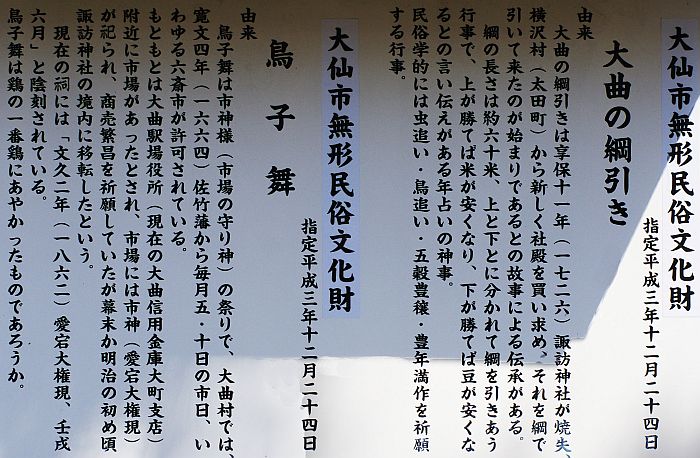 大仙市無形民俗文化財
指定平成三年十二月二十四日
大曲の綱引き
由来
大曲の綱引きは享保十一年（一七二六）諏訪神社が焼失、
横沢村（太田町）から新しく社殿を買い求め、それを綱で
引いて来たのが始まりであるとの故事による伝承がある。
綱の長さは約六十米、上と下とに分かれて綱を引きあう
行事で、上が勝てば米が安くなり、下が勝てば豆が安くな
るとの言い伝えがある年占いの神事。
民俗学的には虫追い・鳥追い・五穀豊穣・豊年満作を祈願
する行事。
大仙市無形民俗文化財
指定平成三年十二月二十四日
鳥子舞
由来
鳥子舞は市神様（市場の守り神）の祭りで、大曲村では、
寛文四年（一六六四）佐竹藩から毎月五・十日の市日、い
わゆる六斎市が許可されている。
もともとは大曲駅場役所（現在の大曲信用金庫大町支店）
附近に市場があったとされ、市場には市神（愛宕大権現）
が祀られ、商売繁昌を祈願していたが幕末か明治の初め頃
諏訪神社の境内に移転したという。
現在の祠には「文久二年（一八六二）愛宕大権現、壬戌
六月」と陰刻されている。
鳥子舞は鶏の一番鶏にあやかったものであろうか。